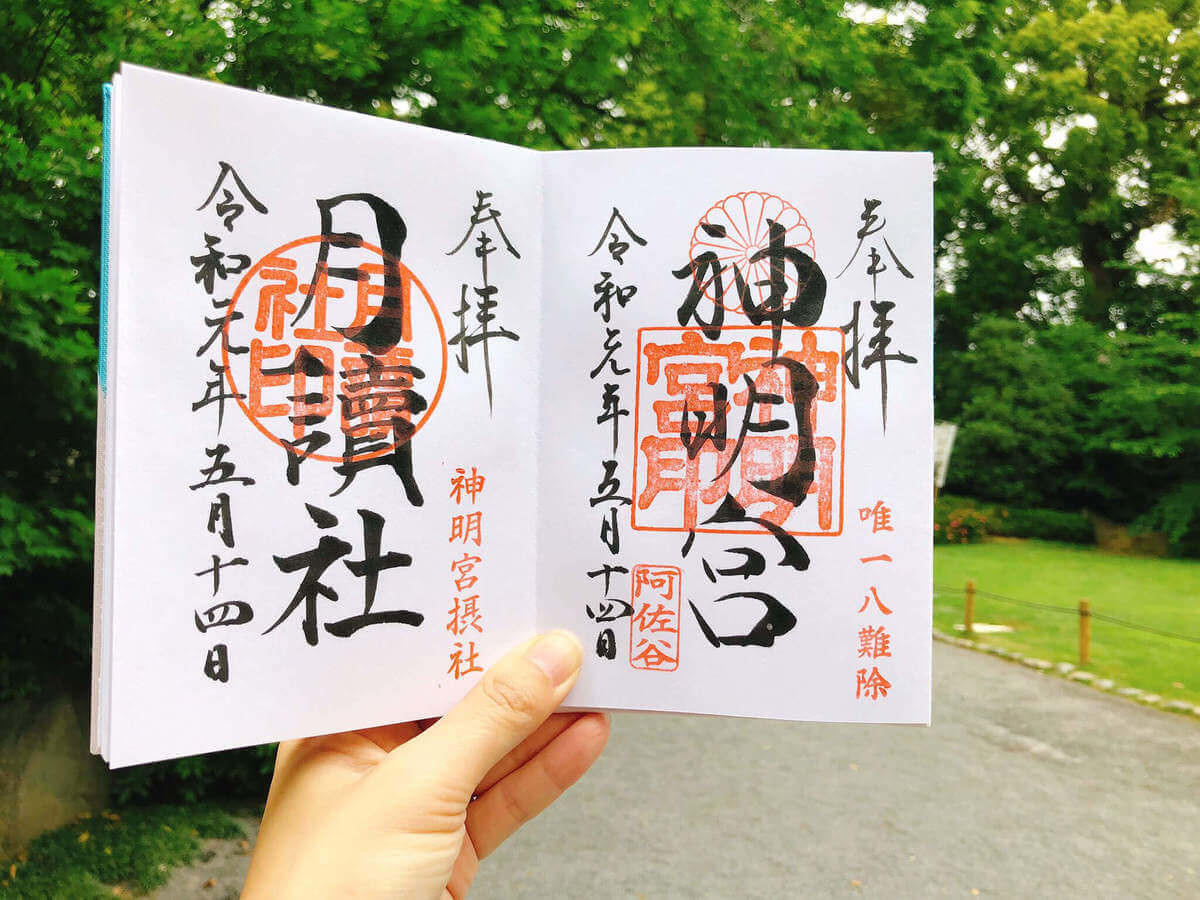 奉拝
唯一八難除
神明宮
神明
宮
阿佐谷
令和元年五月十四日
奉拝
神明宮摂社
月讀社
月讀
社印
令和元年五月十四日